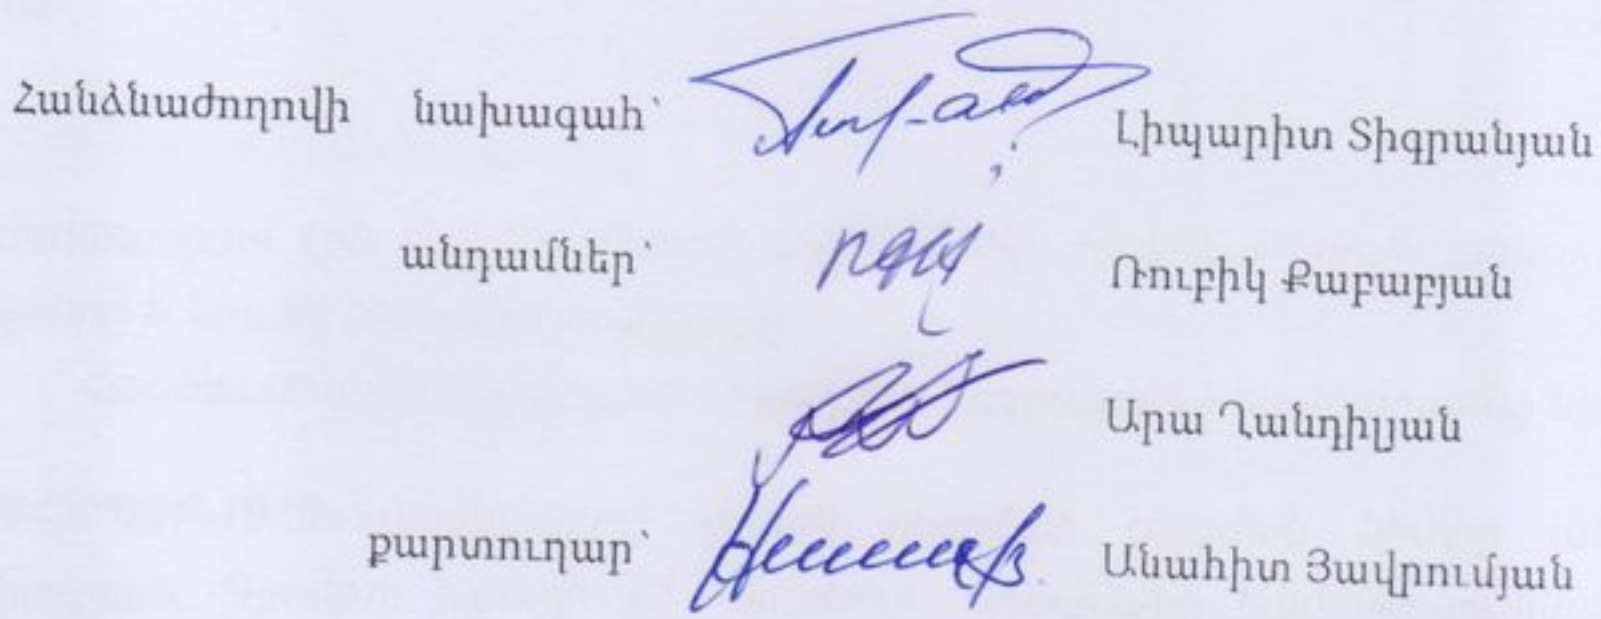 Հանձնաժողովի նախագահ՝ Լիպարիտ Տիգրանյան
անդամներ՝ Ռուբիկ Քաբաբյան
Արա Ղանդիլյան
քարտուղար՝ Անահիտ Յավրումյան